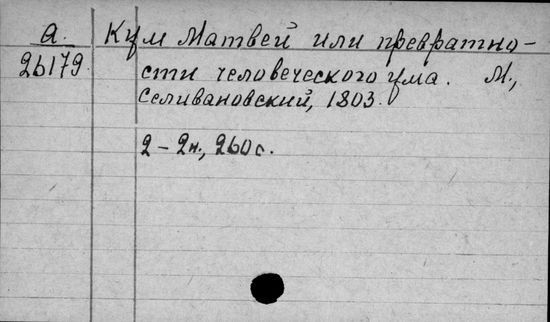 а. Кум Матвей или превратно-
26179. сти человеческого ума. М.,
Селивановский, 1803.
2-2н., 260 с.